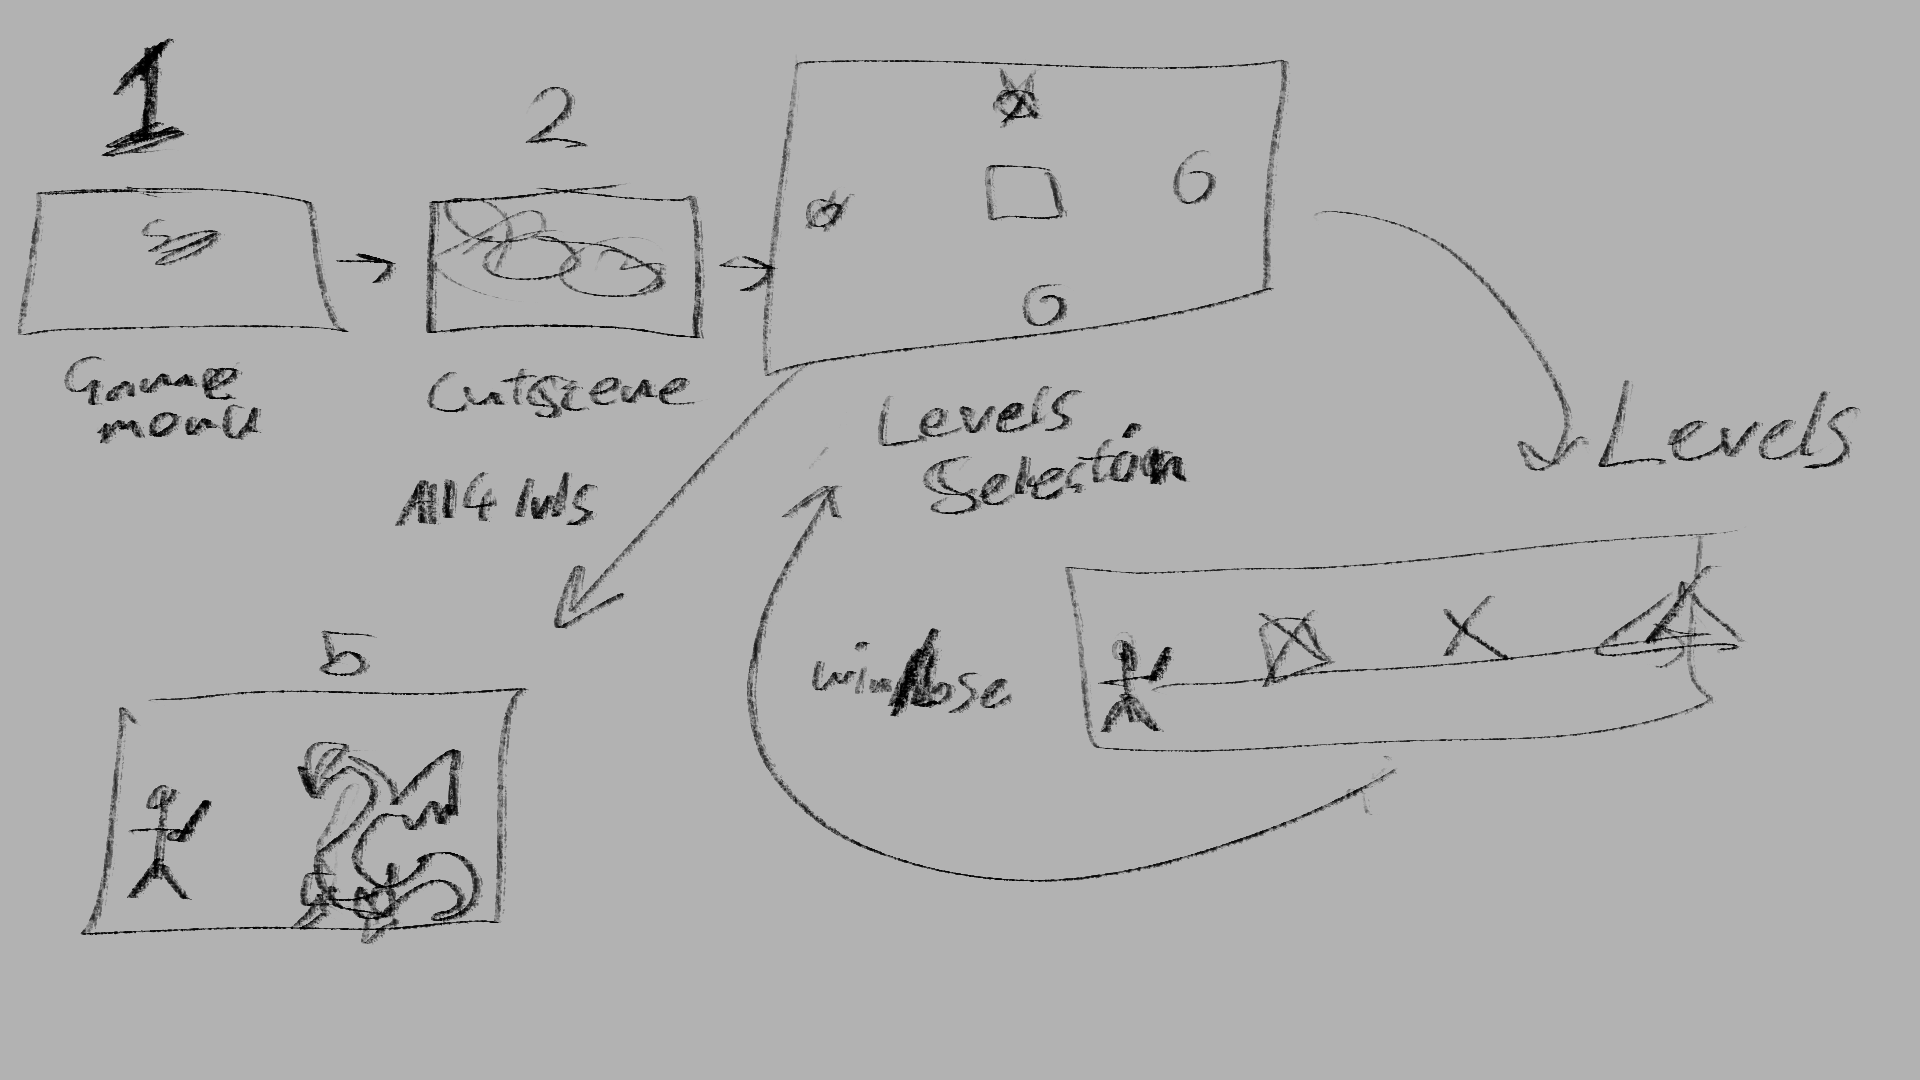 1
2
Game
menu
Cutscene
Levels
Selection
All 4 lvls
Levels
win/lose
5